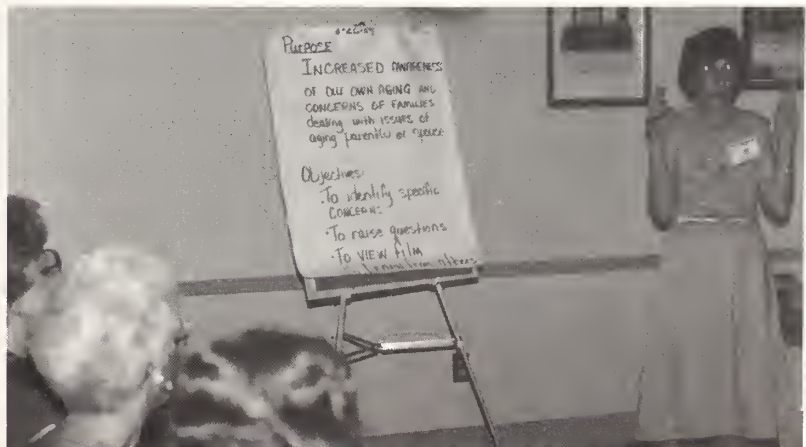 PURPOSE
INCREASED AWARENESS
OF OUR OWN AGING AND
CONCERNS OF FAMILIES
dealing with issues of
aging parents or spouse
Objectives:
·To identify specific
CONCERNS
·To raise questions
·To VIEW FILM